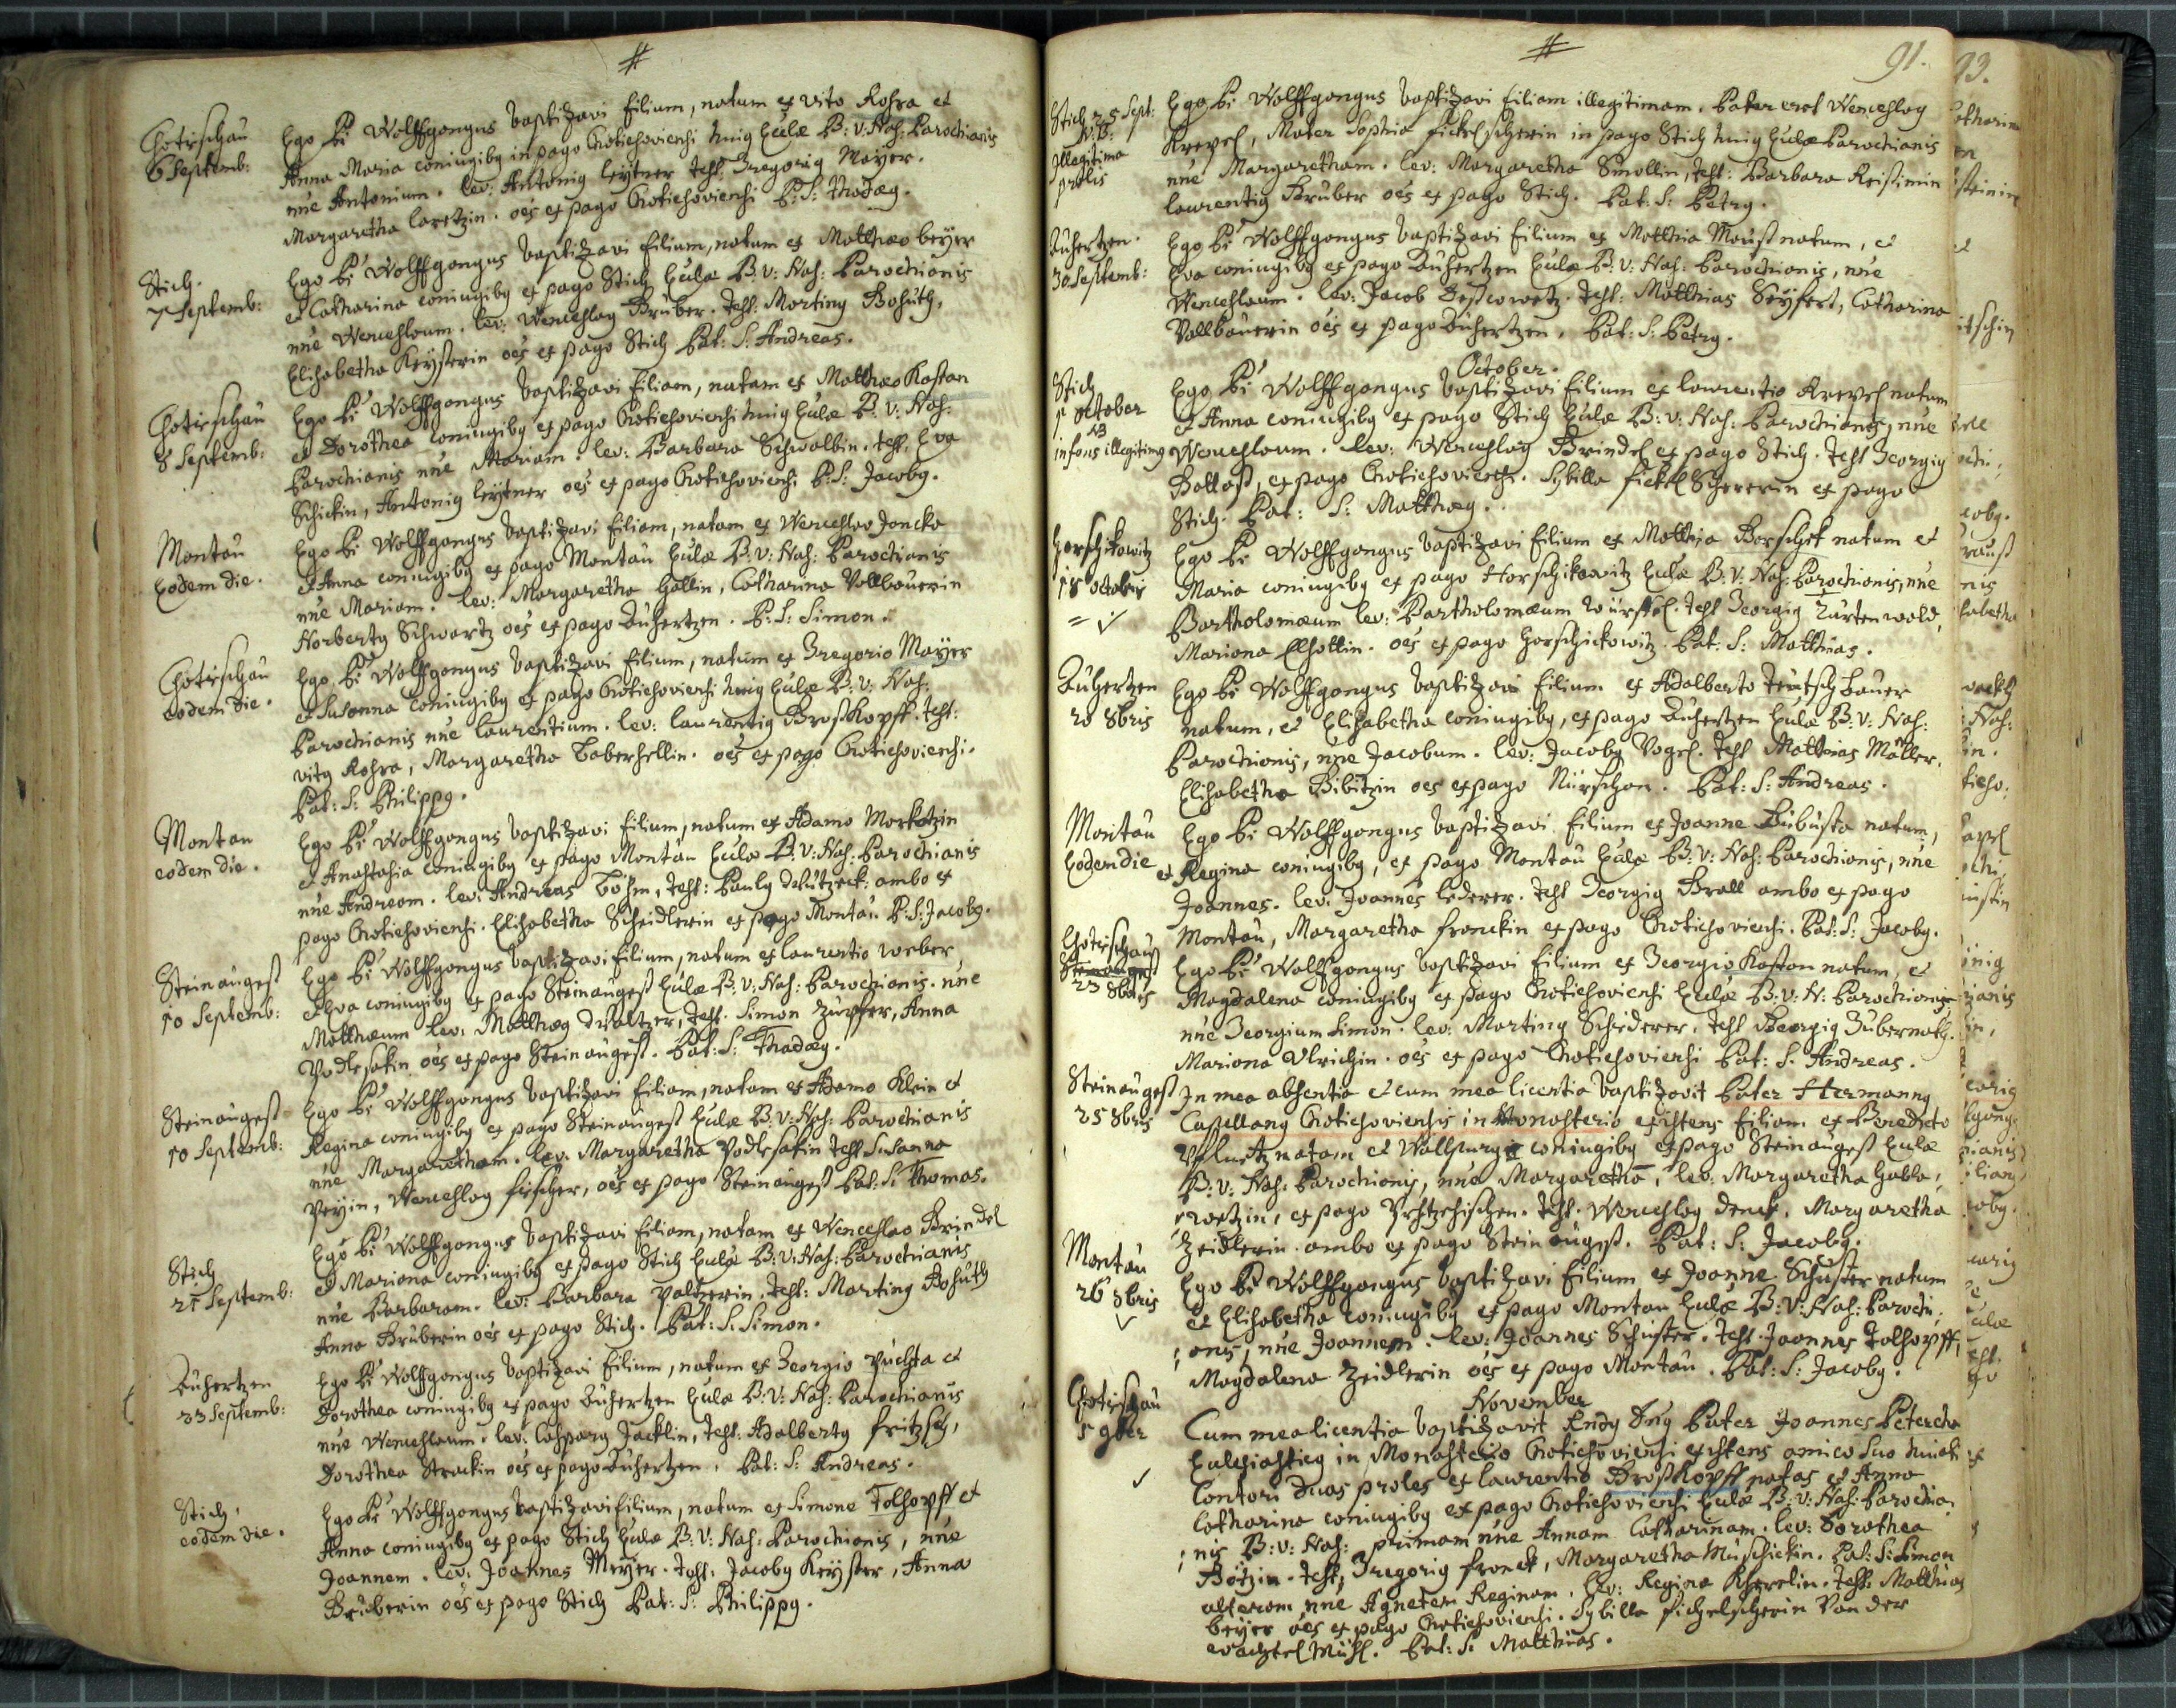 #
Chotischau
6 Septemb:
Ego Fr Wolffgangus baptizavi filium, natum ex Vito Rohra et
Anna Maria coniugibus in pago Chotieschoviensi huius Eulæ B: V: Nas: Parochianis
nne Antonium. lev: Antonius leytner test: Gregorius Mayer.
Margaretha loretzin. oes ex pago Chotieschoviensi P: S: Thadæus.
Stich.
7 Septemb:
Ego Fr Wolffgangus baptizavi filium, natum ex Matthæo beyer
et Catharina coniugibus ex pago Stich Eulæ B: V: Nas: Parochianis
nne Wenceslaum. lev: Wenceslaus Bruber. Test: Martinus Bohuth,
Elisabetha Keyserin oes ex pago Stich Pat: S: Andreas.
Chotischau
8 Septemb:
Ego Fr Wolffgangus baptizavi filiam, natam ex Matthæo Kastan
et Dorothea coniugibus ex pago Chotieschoviensi huius Eulæ B: V: Nas:
Parochianis nne Mariam. lev: Barbara Schwalbin. test. Eva
Schickin, Antonius leytner oes ex pago Chotieschoviensi P: S: Jacobus.
Mantau
Eodem die.
Ego Fr Wolffgangus baptizavi filiam, natam ex Wenceslao Joncka
et Anna coniugibus ex pago Mantau Eulæ B: V: Nas: Parochianis
nne Mariam. lev: Margaretha Hallin, Catharina Vollbauerin
Norbertus Schwartz oes ex pago Auhertzen. P: S: Simon.
Chotischau
eodem die.
Ego Fr Wolffgangus baptizavi filium, natum ex Gregorio Mayer
et Susanna coniugibus ex pago Chotieschoviensi huius Eulæ B: V: Nas:
Parochianis nne laurentium. lev: laurentius Broskopff. Test:
Vitus Rohra, Margaretha Taberhellin. oes ex pago Chotieschoviensi.
Pat: S: Philippus.
Mantau
eodem die.
Ego Fr Wolffgangus baptizavi filium, natum ex Adamo Morkotzin
et Anastasia coniugibus ex pago Mantau Eulæ B: V: Nas: Parochianis
nne Andream. lev: Andreas Böhm, Test: Paulus ambo ex
pago Chotieschoviensi. Elisabetha Scheidlerin ex pago Mantau. P: S: Jacobus.
Steinaugest
10 Septemb:
Ego Fr Wolffgangus baptizavi filium, natum ex laurentio weber,
et Eva coniugibus ex pago Steinaugest Eulæ B: V: Nas: Parochianis. nne
Matthæum lev: Matthæus, Test. Simon Zupfer, Anna
Podlesakin oes ex pago Steinaugest. Pat: S: Thadæus.
Steinaugest
10 Septemb:
Ego Fr Wolffgangus baptizavi filiam, natam ex Adamo Klein et
Regina coniugibus ex pago Steinaugest Eulæ B: V: Nas: Parochianis
nne Margaretham. lev: Margaretha Podlesakin test Susanna
Peyin, Wenceslaus fischer, oes ex pago Steinaugest Pat: S: Thomas.
Stich
21 Septemb:
Ego Fr Wolffgangus baptizavi filiam, natam ex Wenceslao Brindel
et Mariana coniugibus ex pago Stich Eulæ B: V: Nas: Parochianis
nne Barbaram. lev: Barbara Paltzerin. Test: Martinus Bohuth
Anna Bruberin oes ex pago Stich. Pat: S: Simon.
Auhertzen
23 Septemb:
Ego Fr Wolffgangus baptizavi filium, natum ex Georgio Puchta et
Dorothea coniugibus ex pago Auhertzen Eulæ B: V: Nas: Parochianis
nne Wenceslaum. lev: Casparus Jacklin, Test: Adalbertus fritzsch,
Dorothea Strackin oes ex pago Auhertzen. Pat: S: Andreas.
Stich
eodem die.
Ego Fr Wolffgangus baptizavi filium, natum ex Simone Tolhopff et
Anna coniugibus ex pago Stich Eulæ B: V: Nas: Parochianis, nne
Joannem. lev: Joannes Meyer. Test: Jacobus Keyser, Anna
Bruberin oes ex pago Stich Pat: S: Philippus.
#
91.
Stich 25 Sept.
N: B:
Illegitima
prolis
Ego Fr Wolffgangus baptizavi filiam illegitimam. Pater erat Wenceslaus
Krepel, Mater Sophia fickelscherin in pago Stich huius Eulæ Parochianis
nne Margaretham. lev: Margaretha Smollin, test: Barbara Reisimin
laurentius Bruber oes ex pago Stich. Pat: S: Petrus.
Auhertzen.
30 Septemb:
Ego Fr Wolffgangus baptizavi filium ex Matthia Moust natum, et
Eva coniugibus ex pago Auhertzen Eulæ B: V: Nas: Parochianis, nne
Wenceslaum. lev: Jacob. Test: Matthias Seyfert, Catharina
Vollbauerin oes ex pago Auhertzen. Pat: S: Petrus.
October.
Stich
1 October
NB
infans illegitimus
Ego Fr Wolffgangus baptizavi filium ex laurentio Krepel natum
et Anna coniugibus ex pago Stich Eulæ B: V: Nas: Parochianis, nne
Wenceslaum. lev: Wenceslaus Brindel ex pago Stich. Test Georgius
Ballast, ex pago Chotieschoviensi. Sybilla fickel Schererin ex pago
Stich. Pat: S: Matthæus.
Horschikowitz
18 octobris
Ego Fr Wolffgangus baptizavi filium ex Matthia Borschet natum et
Maria coniugibus ex pago Horschikowitz Eulæ B: V: Nas: Parochianis, nne
Bartholomæum lev: Bartholomæum Würfel. Test Georgius Zurtenwald,
Mariana Ellhottin. oes ex pago Horschickowitz. Pat: S: Matthias.
Auhertzen
20 8bris
Ego Fr Wolffgangus baptizavi filium ex Adalberto Teutschbauer
natum, et Elisabetha coniugibus, ex pago Auhertzen Eulæ B: V: Nas:
Parochianis, nne Jacobum. lev: Jacobus Vogel. Test Matthias Möller.
Elisabetha Bibitzin oes ex pago Nürschan. Pat: S: Andreas.
Mantau
Eodem die
Ego Fr Wolffgangus baptizavi filium ex Joanne Bubusta natum,
et Regina coniugibus, ex pago Mantau Eulæ B: V: Nas: Parochianis, nne
Joannes. lev: Joannes lederer. Test Georgius Brall ambo ex pago
Mantau, Margaretha franckin ex pago Chotieschoviensi. Pat: S: Jacobus.
Chotischau
Steinaugest
23 8bris
Ego Fr Wolffgangus baptizavi filium ex Georgio Kastan natum, et
Magdalena coniugibus ex pago Chotieschoviensi Eulæ B: V: N: Parochianis
nne Georgium Simon. lev: Martinus Schiderer. Test Georgius Gubernath.
Mariana Ulrichin. oes ex pago Chotieschoviensi Pat: S: Andreas.
Steinaugest
25 8bris
In mea absentia et cum mea licentia baptizavit Pater Hermannus
Capellanus Chotieschoviensis in Monasterio existens filiam ex Benedicto
natam et Wallpurga coniugibus ex pago Steinaugest Eulæ
B: V: Nas: Parochianis, nne Margaretha, lev: Margaretha Habla,
wetzin, ex pago. Test. Wenceslaus denck, Margaretha
Zeidlerin. ambo ex pago Steinaugest. Pat: S: Jacobus.
Mantau
26 8bris
Ego Fr Wolffgangus baptizavi filium ex Joanne Schuster natum
et Elisabetha coniugibus ex pago Mantau Eulæ B: V: Nas: Parochi,
anis, nne Joannem. lev: Joannes Schuster. Test. Joannes Tolhopff,
Magdalena Zeidlerin oes ex pago Mantau. Pat: S: Jacobus.
November
Chotischau
5 9ber
Cum mea licentia baptizavit Rndus Dnus Pater Joannes Petercka
Eulesiasticus in Monasterio Chotieschoviensi existens amico suo
Cantori duas proles ex laurentio Broskopff natas et Anna
Catharina coniugibus ex pago Chotieschoviensi Eulæ B: V: Nas: Parochia,
nis B: V: Nas: primam nne Annam Catharinam. lev: Dorothea
Bötzin. test, Gregorius franck, Margaretha Muschickin. Pat: S: Simon
alteram nne Agnetem Reginam. lev: Regina. Test: Matthias
beyer oes ex pago Chotieschoviensi. Sybilla fichelscherin Von der
wachtel Mühl. Pat: S: Matthias.
93.